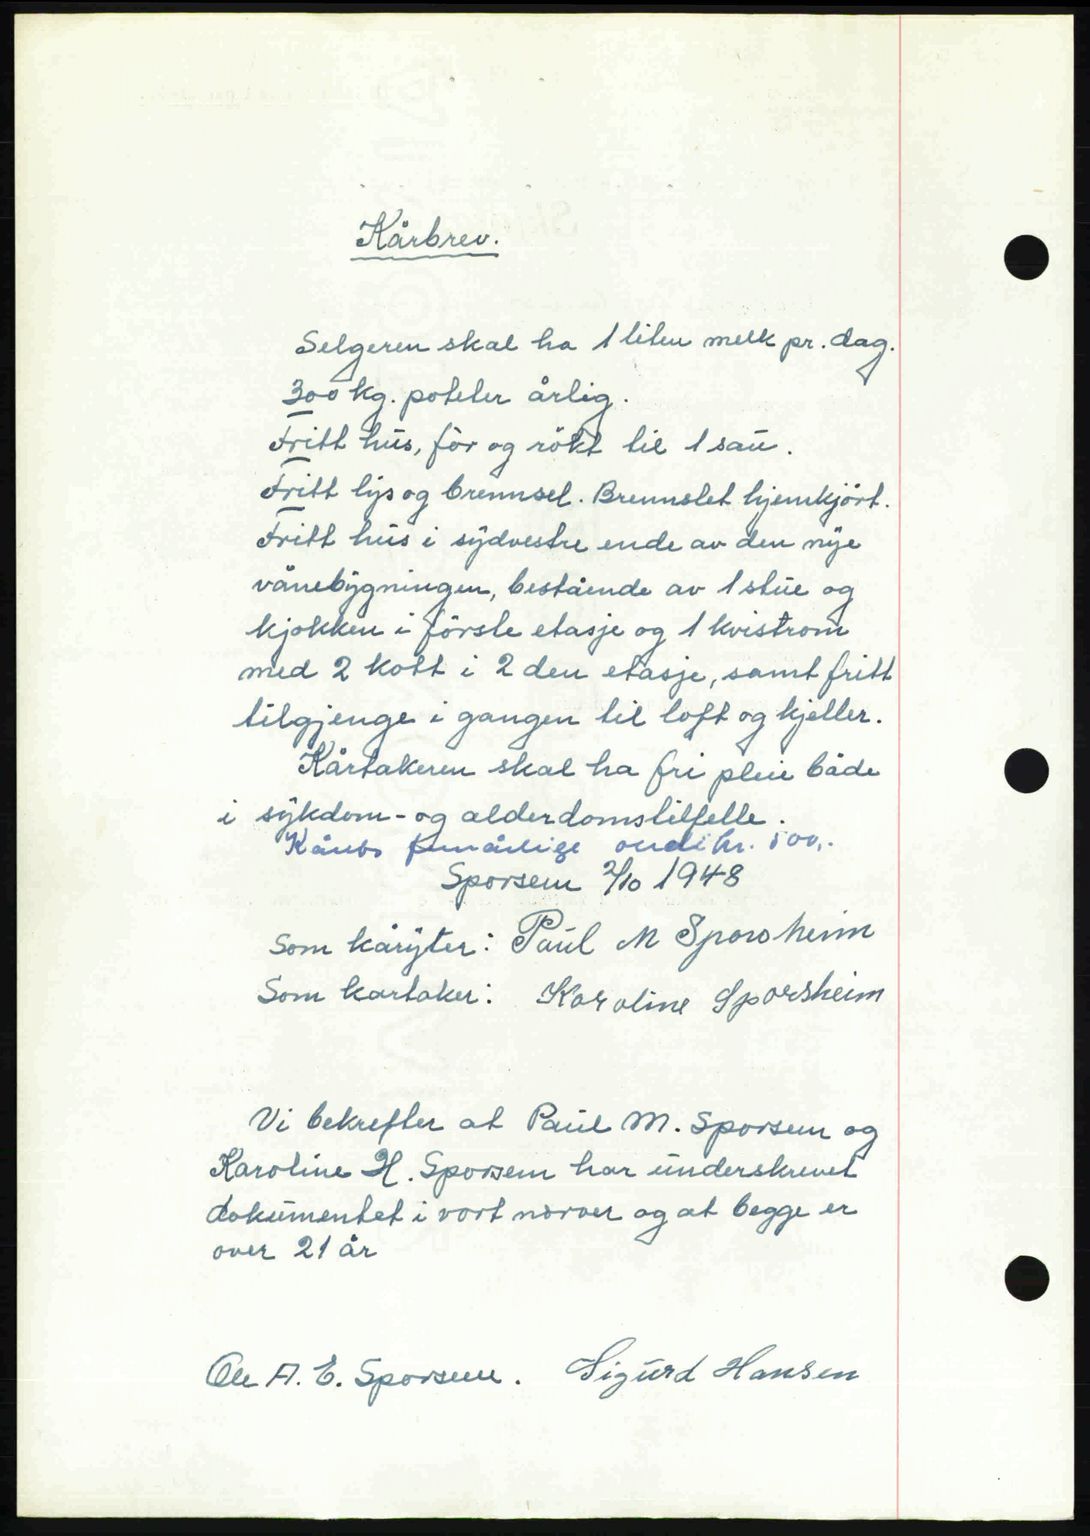 Kårbrev.
Selgeren skal ha 1 liter melk pr. dag.
300 kg. poteter årlig.
Fritt hus, fòr og rökt til 1 sau.
Fritt lys og brennsel. Brennslet hjemkjört.
Fritt hus i sydvestre ende av den nye
vånebygningen, bestående av 1 stue og
kjøkken i förste etasje og 1 kvistrom
med 2 kott i 2 den etasje, samt fritt
tilgjenge i gangen til loft og kjeller.
Kårtakeren skal ha fri pleie både
i sykdom- og alderdomstilfelle.
Kårets femårlige verdi kr. 500,.
Sporsem 2/10 1948
Som kåryter: Paul M Sporsheim
Som kartaker: Karoline Sporsheim
Vi bekrefter at Paul M. Sporsem og
Karoline H. Sporsem har underskrevet
dokumentet i vort nærver og at begge er
over 21 år
Ole A. E. Sporsem. Sigurd Hansen